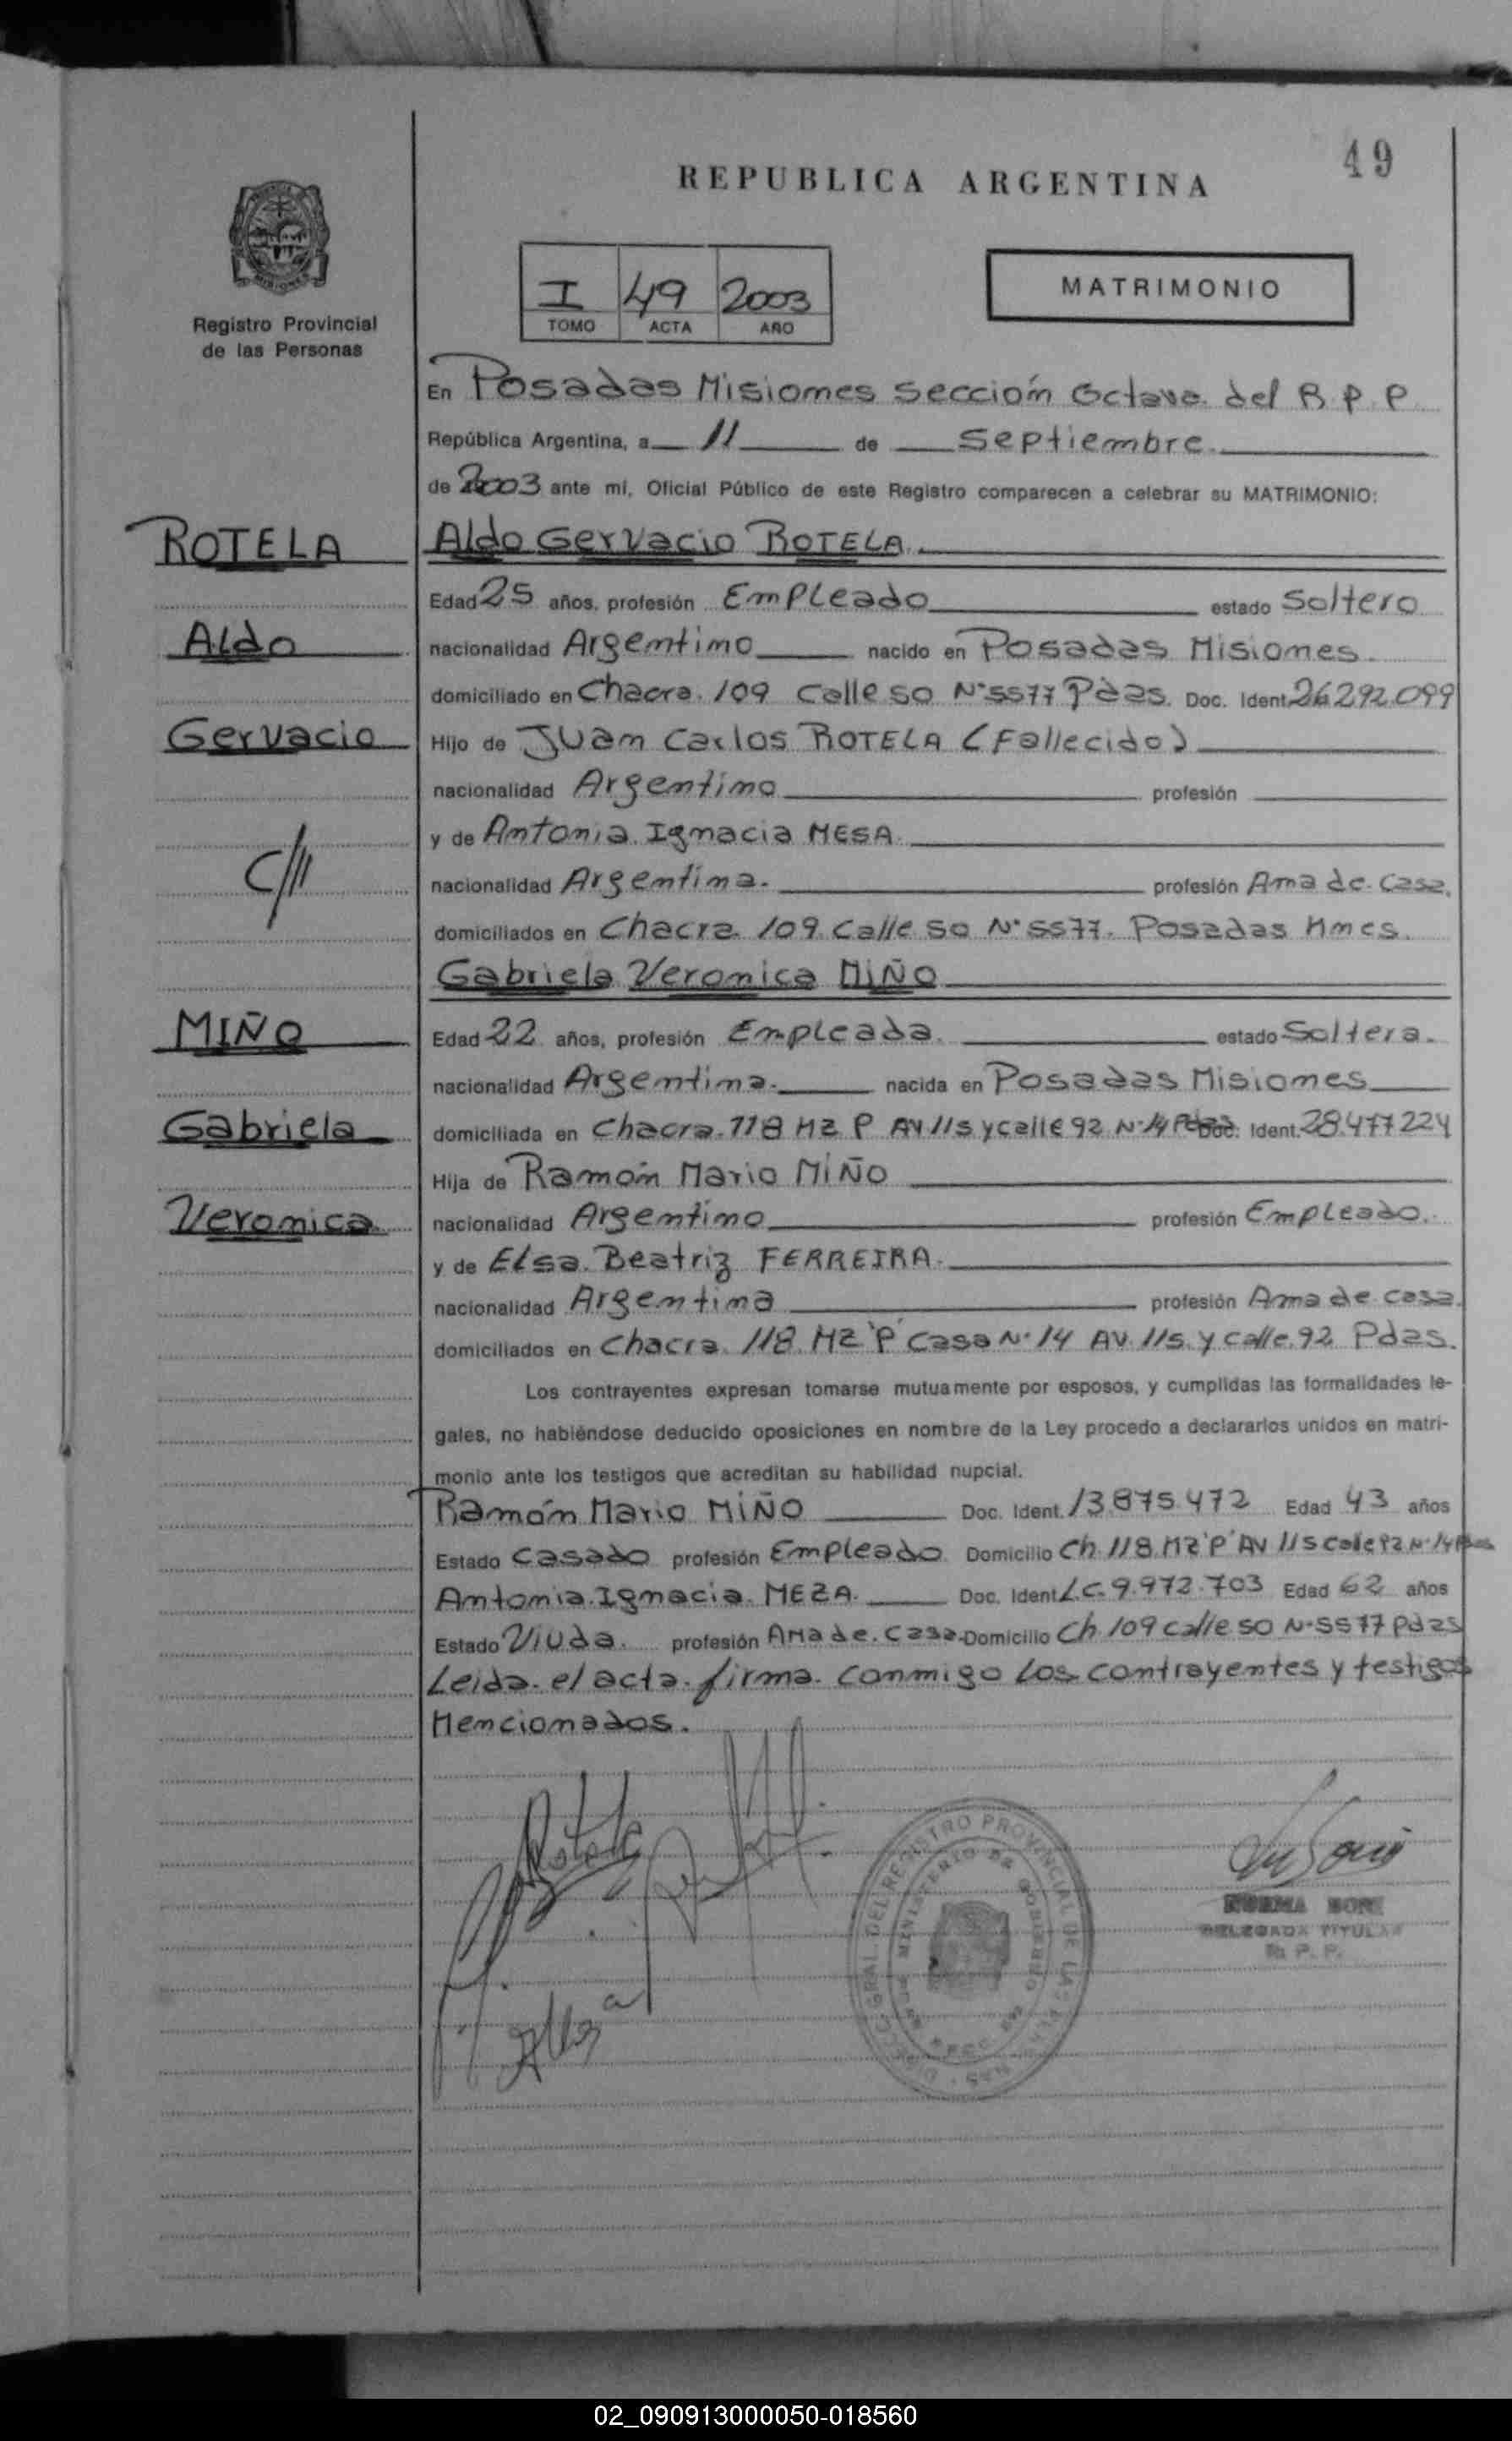 49
REPUBLICA ARGENTINA
Registro Provincial
de las Personas
I 49 2003
TOMO ACTA AÑO
MATRIMONIO
En Posadas Misiones Sección Octava del R P P
República Argentina, a 11 de Septiembre
de 2003 ante mí, Oficial Público de este Registro comparecen a celebrar su MATRIMONIO:
ROTELA
Aldo Gervacio ROTELA
Edad 25 años, profesión Empleado estado Soltero
Aldo
nacionalidad Argentino nacido en Posadas Misiones.
domiciliado en Chacra 109 Calle 50 N°5577 Pdas. Doc. Ident. 26292.099
Gervacio
Hijo de Juan Carlos ROTELA (Fallecido)
nacionalidad Argentino profesión
y de Antonia Ignacia MESA
C///
nacionalidad Argentina. profesión Ama de Casa.
domiciliados en Chacra 109 Calle 50 N° 5577. Posadas Mnes.
Gabriela Veronica MIÑO
MIÑO
Edad 22 años, profesión Empleada. estado Soltera.
nacionalidad Argentina. nacida en Posadas Misiones
Gabriela
domiciliada en Chacra 118 MZ P AV 115 y calle 92 N° 14 Pdas Doc. Ident. 28.477224
Hija de Ramón Mario MIÑO
Veronica
nacionalidad Argentino profesión Empleado.
y de Elsa Beatriz FERREIRA.
nacionalidad Argentina profesión Ama de casa.
domiciliados en Chacra 118 MZ 'P' Casa N° 14 AV. 115 y calle 92 Pdas.
Los contrayentes expresan tomarse mutuamente por esposos, y cumplidas las formalidades le-
gales, no habiéndose deducido oposiciones en nombre de la Ley procedo a declararlos unidos en matri-
monio ante los testigos que acreditan su habilidad nupcial.
Ramón Mario MIÑO Doc. Ident. 13.875.472 Edad 43 años
Estado Casado profesión Empleado Domicilio Ch 118 MZ 'P' AV 115 Calle 92 N° 14 Pdas
Antonia Ignacia MEZA. Doc. Ident. L.C. 9.972.703 Edad 62 años
Estado Viuda. profesión Ama de Casa. Domicilio Ch 109 calle 50 N° 5577 Pdas
Leida el acta firma conmigo los contrayentes y testigos
Mencionados.
Rotela
DEL REGISTRO PROVINCIAL DE LAS PERSONAS
MINISTERIO DE GOBIERNO
NORMA
DELEGADA TITULAR
R. P. P.
02_090913000050-018560